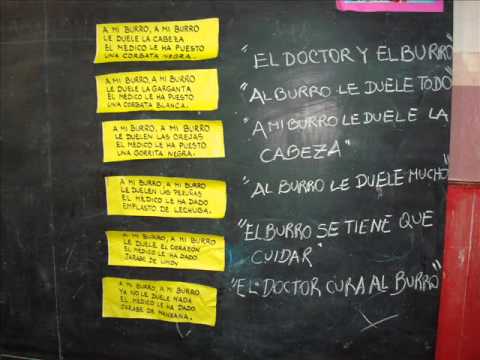 A MI BURRO, A MI BURRO
LE DUELE LA CABEZA
EL MEDICO LE HA PUESTO
UNA CORBATA NEGRA.
A MI BURRO, A MI BURRO
LE DUELE LA GARGANTA
EL MEDICO LE HA PUESTO
UNA CORBATA BLANCA.
A MI BURRO, A MI BURRO
LE DUELEN LAS OREJAS
EL MEDICO LE HA PUESTO
UNA GORRITA NEGRA.
A MI BURRO, A MI BURRO
LE DUELEN LAS PEZUÑAS
EL MEDICO LE HA DADO
EMPLASTO DE LECHUGA.
A MI BURRO, A MI BURRO
LE DUELE EL CORAZON
EL MEDICO LE HA DADO
JARABE DE LIMON
A MI BURRO, A MI BURRO
YA NO LE DUELE NADA
EL MEDICO LE HA DADO
JARABE DE MANZANA.
"EL DOCTOR Y EL BURRO"
"AL BURRO LE DUELE TODO
"A MI BURRO LE DUELE LA
CABEZA"
"AL BURRO LE DUELE MUCHO"
"EL BURRO SE TIENE QUE
CUIDAR"
"EL DOCTOR CURA AL BURRO"